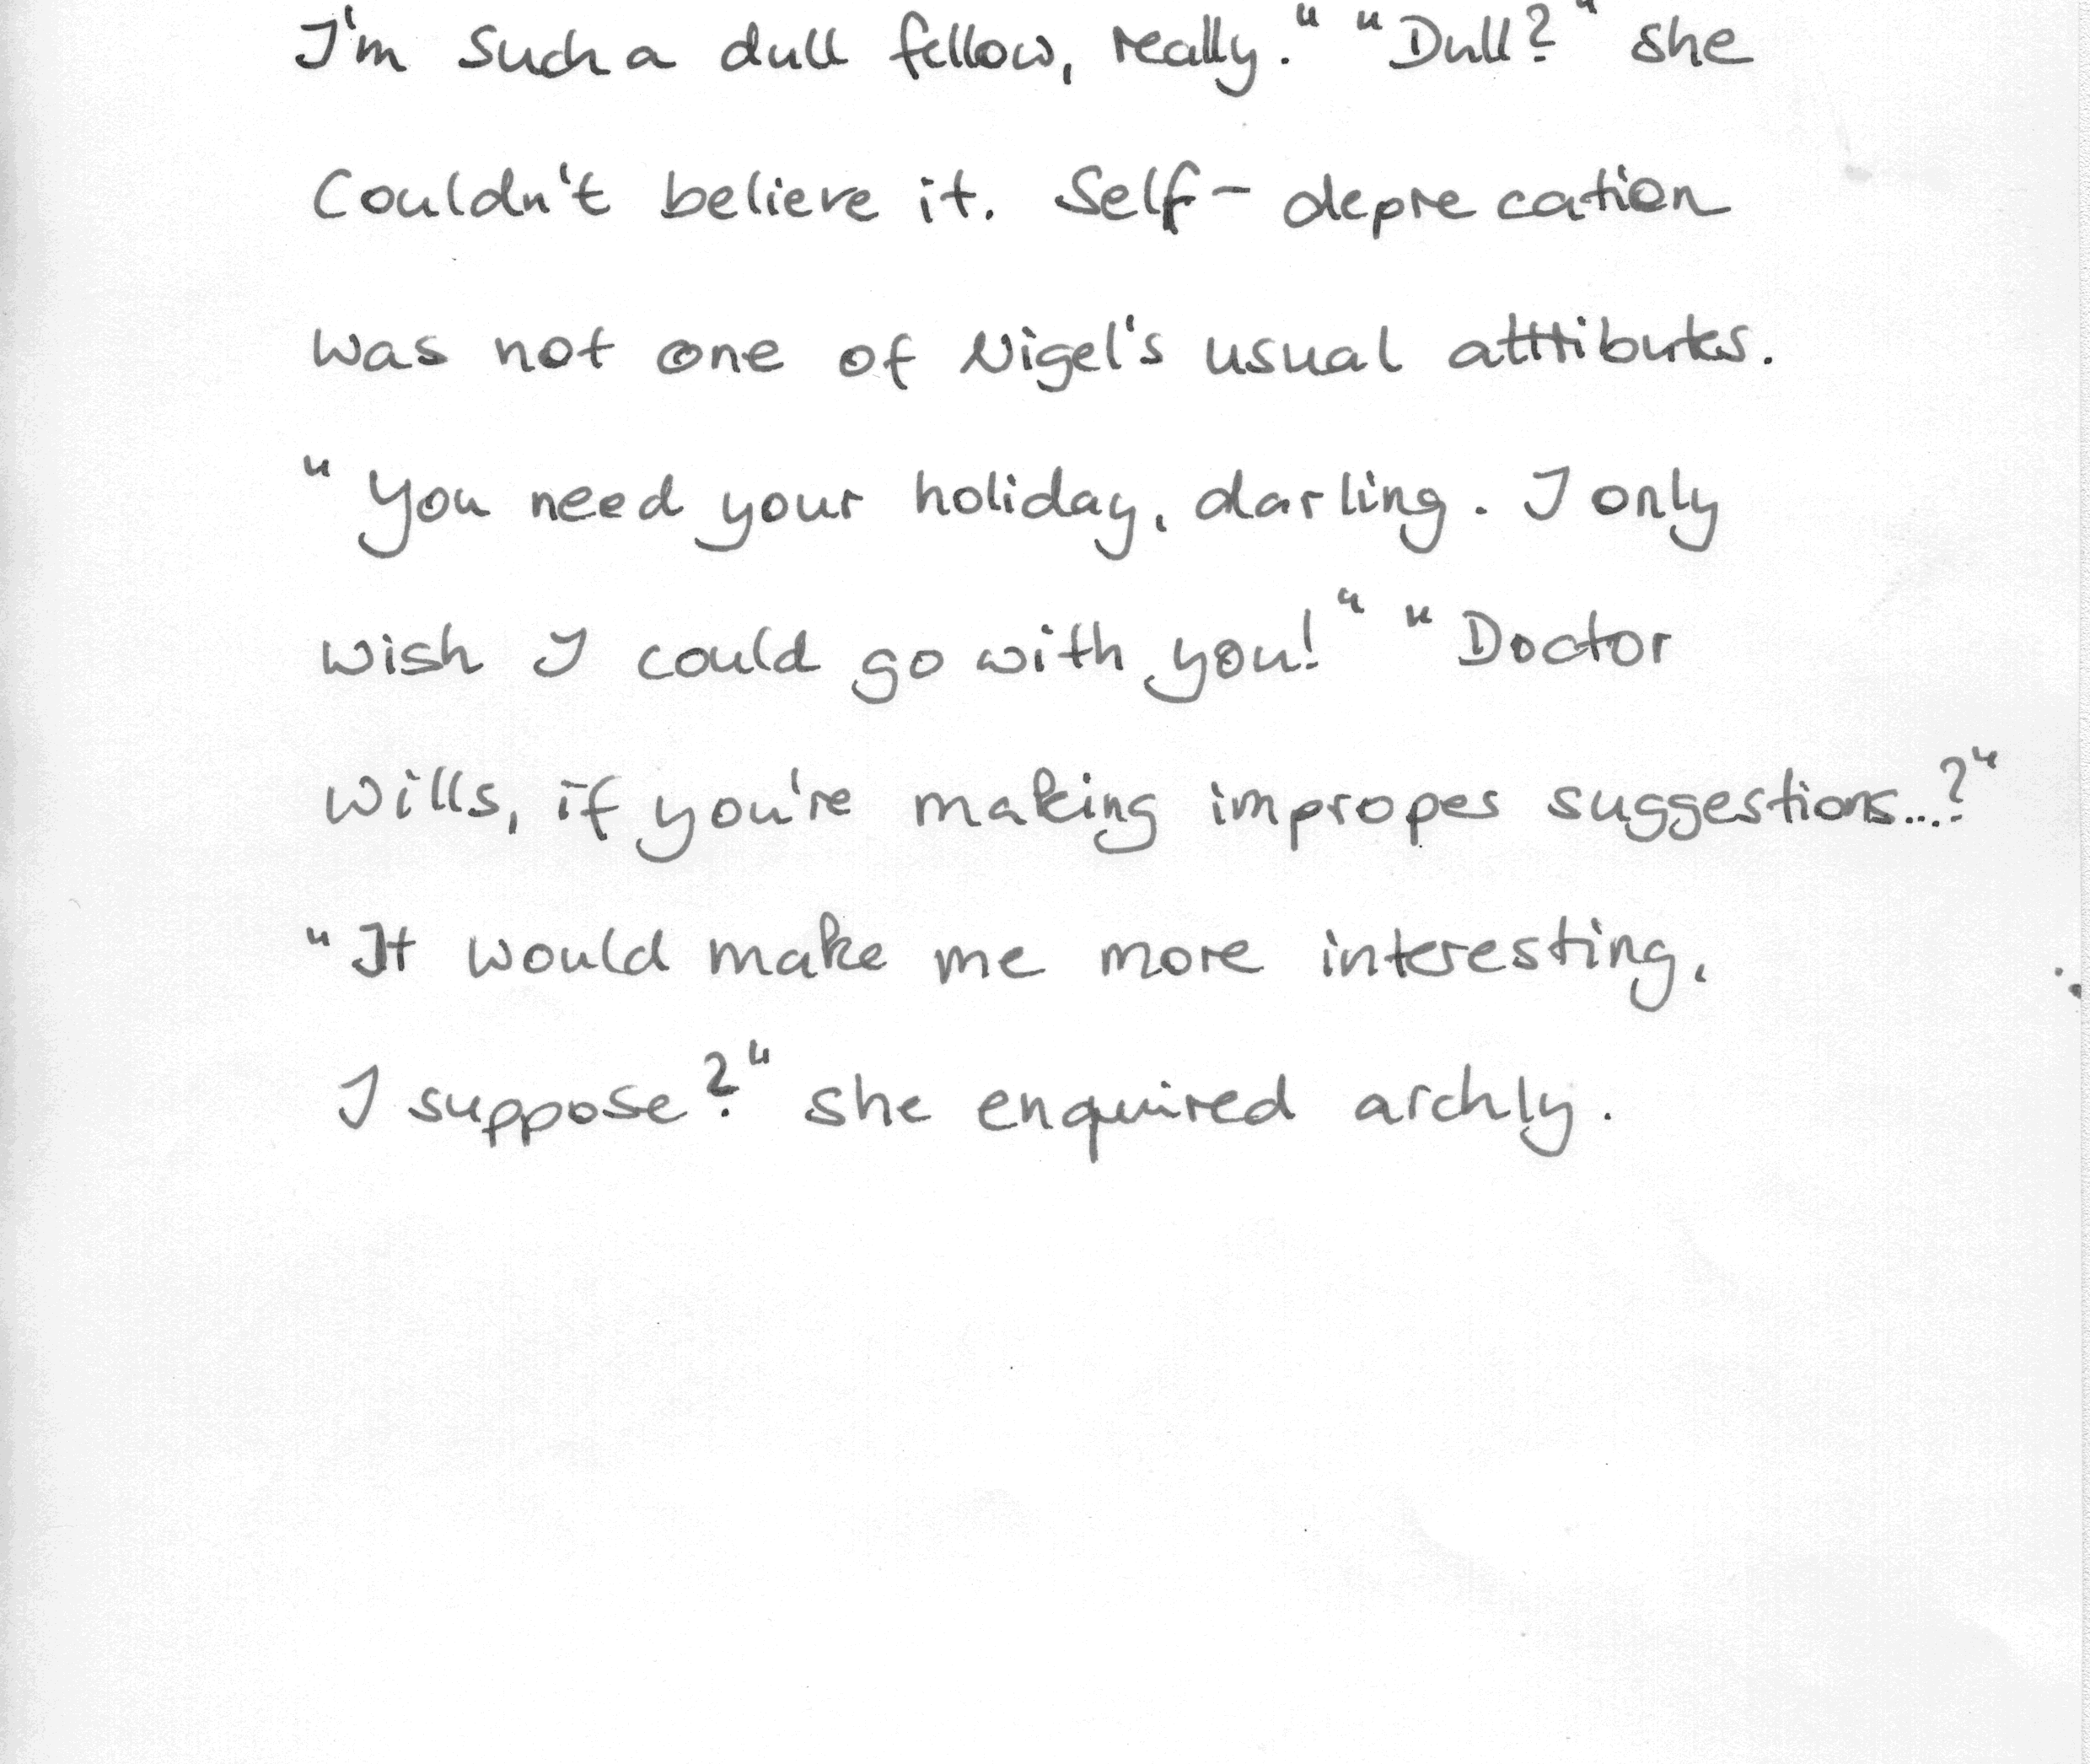 I'm such a dull fellow, really." "Dull?" she
couldn't believe it. Self-deprecation
was not one of Nigel's usual attributes.
"You need your holiday, darling. I only
wish I could go with you!" "Doctor
Wills, if you're making impropes suggestions...?"
"It would make me more interesting,
I suppose?" she enquired archly.